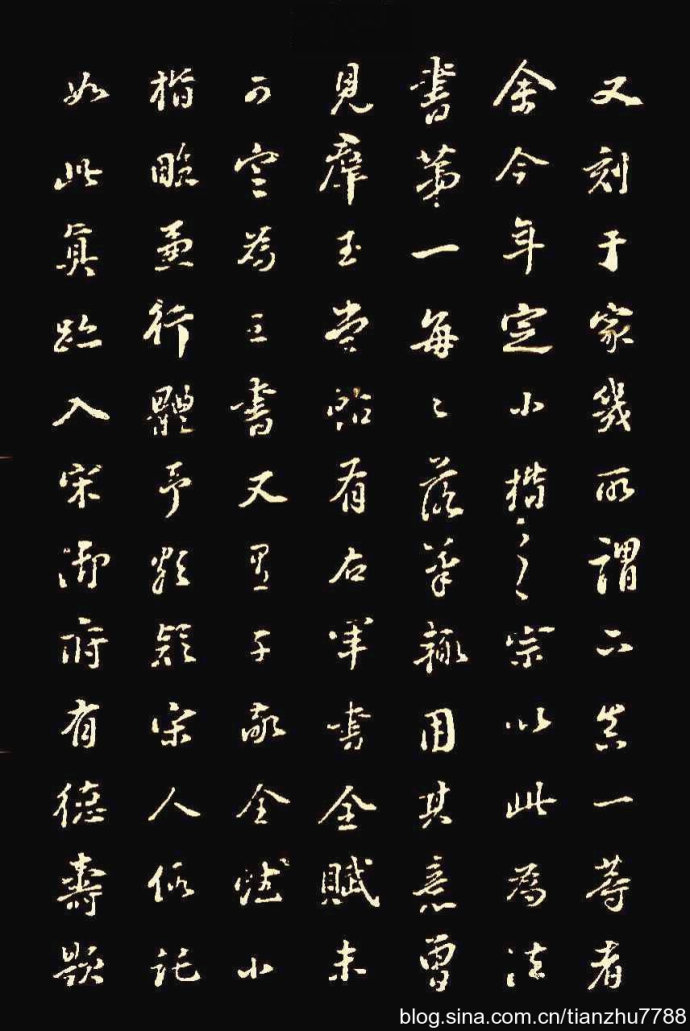 又刻于家幾所謂下真一等者
余今年定小楷之宗以此為法
書第一每〻落筆輒用其意曾
見群玉堂帖有右軍書全賦未
可定為王書又見子敬全賦小
楷臨兼行體予頗疑宋人假託
如此真跡入宋御府有德壽題
blog.sina.com.cn/tianzhu7788